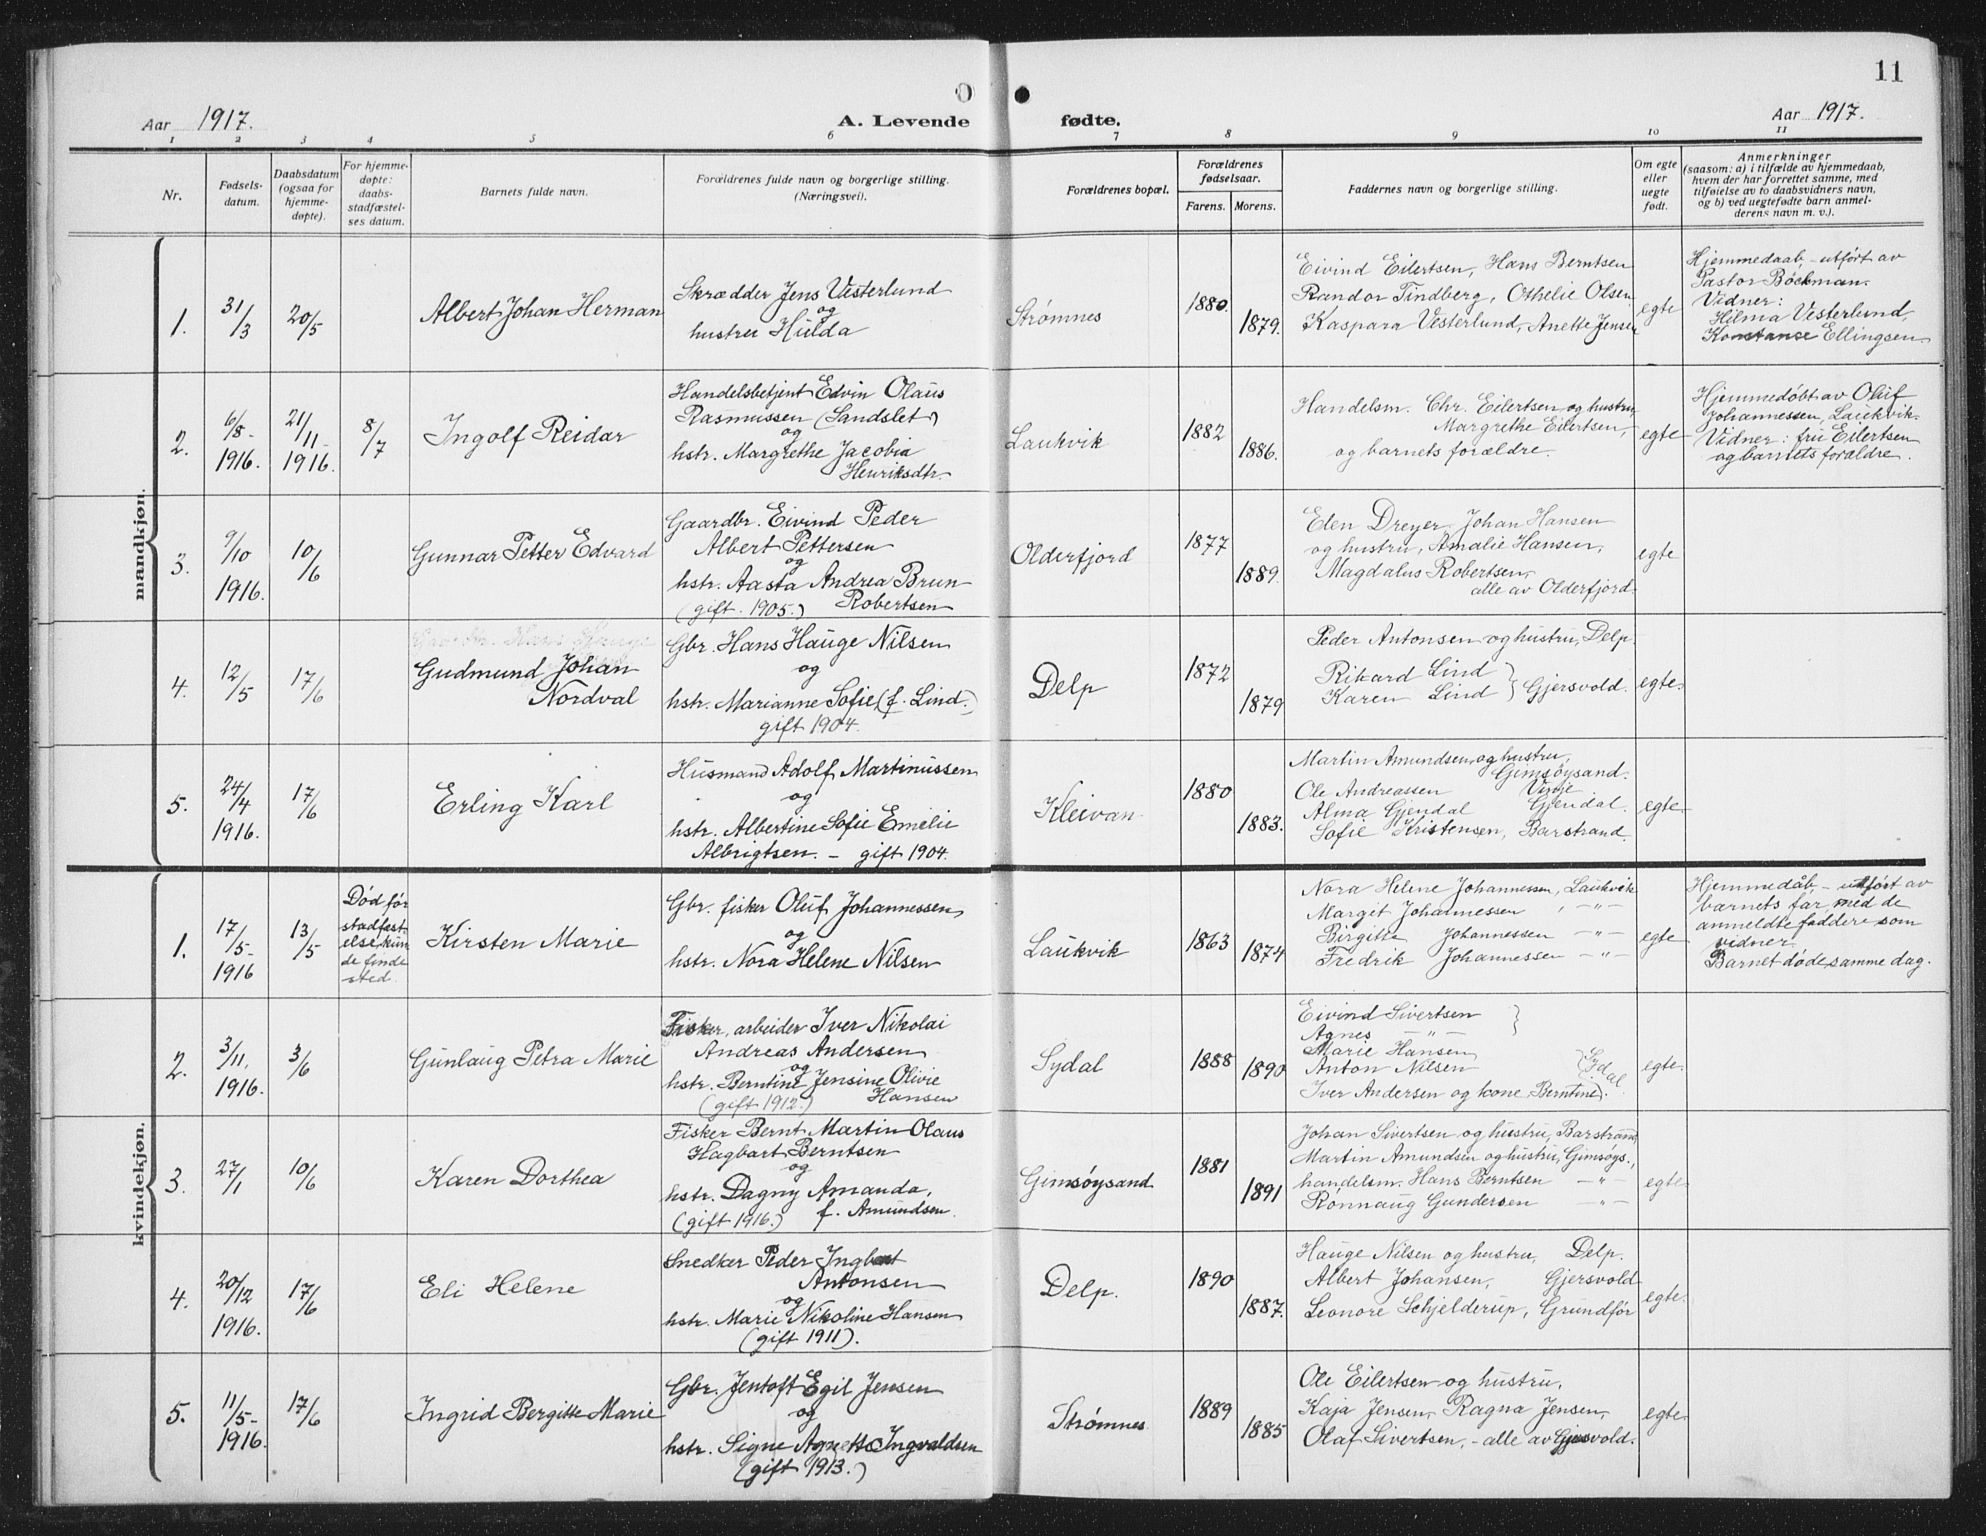 11
Aar 1917. A. Levende fødte. Aar 1917.
1 2 3 4 5 6 7 8 9 10 11
Nr.
Fødsels-
datum.
Daabsdatum
(ogsaa for
hjemme-
døpte).
For hjemme-
døpte:
daabs-
stadfæstel-
ses datum.
Barnets fulde navn.
Forældrenes fulde navn og borgerlige stilling.
(Næringsvei).
Forældrenes bopæl.
Forældrenes
fødselsaar.
Farens. Morens.
Faddernes navn og borgerlige stilling.
Om egte
eller
uegte
født.
Anmerkninger
(saasom: a) i tilfælde av hjemmedaab,
hvem der har forrettet samme, med
tilføielse av to daabsvidners navn,
og b) ved uegtefødte barn anmel-
derens navn m. v.).
mandkjøn.
1.
31/3
20/5
Albert Johan Herman
Skrædder Jens Vesterlund
og
hustru Hulda
Strømnes
1880.
1879.
Eivind Eilertsen, Hans Berntsen
Randor Tindberg, Othelie Olsen
Kaspara Vesterlund, Anette Jensen
egte
Hjemmedaab, - utført av
Pastor Böckman.
Vidner:
Hilma Vesterlund,
Konstanse Ellingsen.
2.
6/8-
1916.
21/11-
1916.
8/7
Ingolf Reidar
Handelsbetjent Edvin Olaus
Rasmussen (Sandslet)
og
hstr. Margrethe Jacobia
Henriksdtr.
Laukvik
1882
1886.
Handelsm. Chr. Eilertsen og hustru
Margrethe Eilertsen,
og barnets forældre.
egte
Hjemmedöbt av Oluf
Johannessen, Laukvik.
Vidner: fru Eilertsen
og barnets forældre.
3.
9/10
1916.
10/6
Gunnar Petter Edvard
Gaardbr. Eivind Peder
Albert Pettersen
og
hstr. Aasta Andrea Brun
(gift. 1905.) Robertsen
Olderfjord
1877
1889.
Elen Dreyer, Johan Hansen
og hustru, Amalie Hansen,
Magdalus Robertsen,
alle av Olderfjord.
egte
4.
12/5
17/6
Gudmund Johan
Nordval
Gbr. Hans Hauge Nilsen
og
hstr. Marianne Sofie, (f. Lind.)
gift 1904.
Delp
1872
1879
Peder Antonsen og hustru, Delp.
Rikard Lind
Karen Lind } Gjersvold.
egte.
5.
24/4
1916.
17/6
Erling Karl
Husmand Adolf Martinussen
og
hstr. Albertine Sofie Emelie
Albrigtsen. - gift 1904.
Kleivan.
1880
1883.
Martin Amundsen og hustru,
Gimsöysand.
Ole Andreassen Vinje
Alma Gjendal Gjendal.
Sofie Kristensen, Barstrand.
egte.
kvindekjøn.
1.
17/5-
1916
13/5
Död før
stadfest-
else kun
de finde
sted.
Kirsten Marie
Gbr. fisker Oluf Johannessen,
og
hstr. Nora Helene Nilsen
Laukvik
1863
1874
Nora Helene Johannessen, Laukvik
Margit Johannessen, -"-
Birgitte Johannessen -"-
Fredrik Johannessen -"-
egte
Hjemmedåb, - utført av
barnets far med de
anmeldte faddere som
vidner.
Barnet døde samme dag.
2.
3/11.
1916.
3/6
Gunlaug Petra Marie
Fisker, arbeider Iver Nikolai
Andreas Andersen
og
hstr. Berntine Jensine Olivie
(gift 1912.) Hansen
Sydal
1888
1890
Eivind Sivertsen
Agnes -"-
Marie Hansen
Anton Nilsen
Iver Andersen og kone Berntine.
Sydal
egte.
3.
27/1
10/6
Karen Dorthea
Fisker Bernt Martin Olaus
Hagbart Berntsen
og
hstr. Dagny Amanda,
(gift 1916.) f. Amundsen.
Gimsöysand
1881
1891
Johan Sivertsen og hustru, Barstrand,
Martin Amundsen og hustru, Gimsöys.,
handelsm. Hans Berntsen -"-
Rönnaug Gundersen -"-
egte.
4.
20/12
1916.
17/6
Eli Helene
Snedker Peder Ingbert
Antonsen
og
hstr. Marie Nikoline Hansen
(gift 1911).
Delp.
1890
1887.
Hauge Nilsen og hustru, Delp.
Albert Johansen, Gjersvold
Leonore Schjelderup, Grundfør
egte.
5.
11/5-
1916.
17/6
Ingrid Bergitte Marie
Gbr. Jentoft Egil Jensen
og
hstr. Signe Agnette Ingvaldsen
(gift 1913.)
Strømnes
1889
1885
Ole Eilertsen og hustru,
Kaja Jensen, Ragna Jensen,
Olaf Sivertsen, - alle av Gjersvold.
egte.